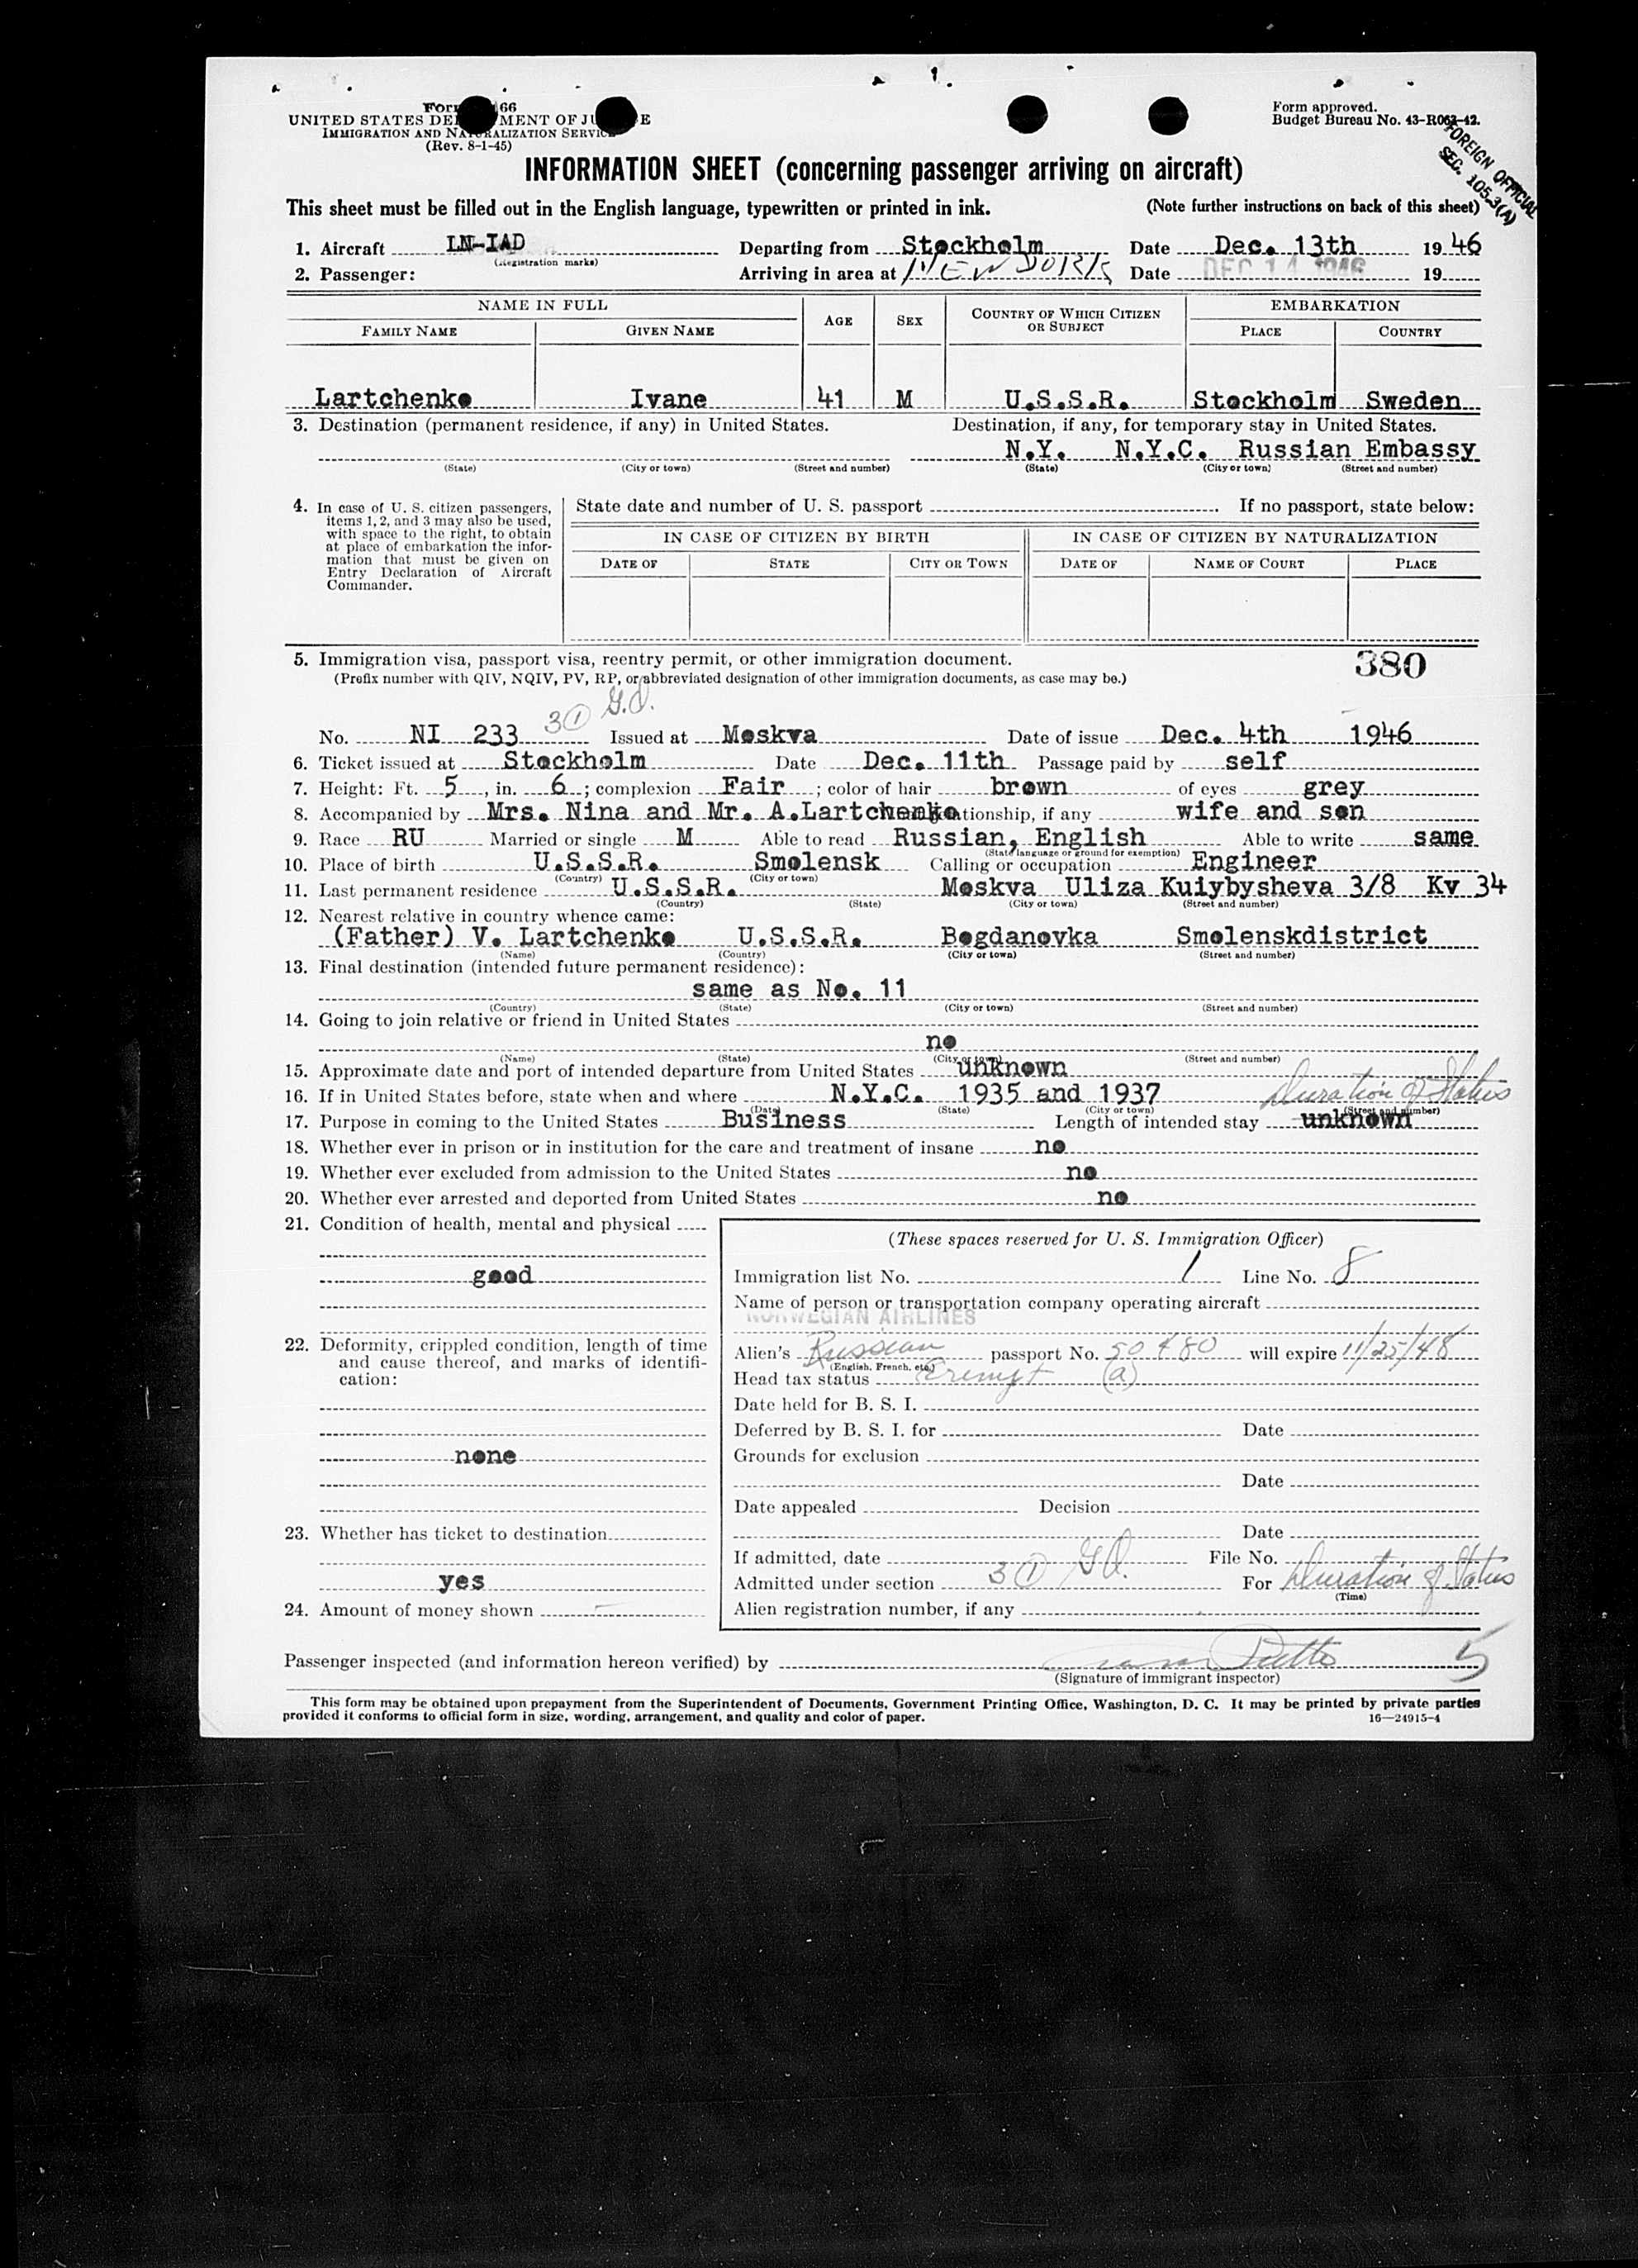 Form 66
UNITED STATES DE MENT OF JU E
IMMIGRATION AND NATURALIZATION SERVICE
(Rev. 8-1-45)
Form approved.
Budget Bureau No. 43-R063-42.
FOREIGN OFFICIAL
SEC. 105.3(A)
INFORMATION SHEET (concerning passenger arriving on aircraft)
This sheet must be filled out in the English language, typewritten or printed in ink. (Note further instructions on back of this sheet)
1. Aircraft LN-IAD Departing from Stockholm Date Dec. 13th 1946
(Registration marks)
2. Passenger: Arriving in area at NEW YORK Date DEC 14 1946 19
NAME IN FULL AGE SEX COUNTRY OF WHICH CITIZEN OR SUBJECT EMBARKATION
FAMILY NAME GIVEN NAME PLACE COUNTRY
Lartchenko Ivane 41 M U.S.S.R. Stockholm Sweden
3. Destination (permanent residence, if any) in United States. Destination, if any, for temporary stay in United States.
N.Y. N.Y.C. Russian Embassy
(State) (City or town) (Street and number) (State) (City or town) (Street and number)
4. In case of U. S. citizen passengers, items 1, 2, and 3 may also be used, with space to the right, to obtain at place of embarkation the information that must be given on Entry Declaration of Aircraft Commander.
State date and number of U. S. passport . If no passport, state below:
IN CASE OF CITIZEN BY BIRTH IN CASE OF CITIZEN BY NATURALIZATION
DATE OF STATE CITY OR TOWN DATE OF NAME OF COURT PLACE
5. Immigration visa, passport visa, reentry permit, or other immigration document. 380
(Prefix number with QIV, NQIV, PV, RP, or abbreviated designation of other immigration documents, as case may be.)
3 (1) G.O.
No. NI 233 Issued at Moskva Date of issue Dec. 4th 1946
6. Ticket issued at Stockholm Date Dec. 11th Passage paid by self
7. Height: Ft. 5, in. 6; complexion Fair; color of hair brown of eyes grey
8. Accompanied by Mrs. Nina and Mr. A.Lartchenko relationship, if any wife and son
9. Race RU Married or single M Able to read Russian, English Able to write same
(State language or ground for exemption)
10. Place of birth U.S.S.R. Smolensk Calling or occupation Engineer
(Country) (City or town)
11. Last permanent residence U.S.S.R. Moskva Uliza Kuiybysheva 3/8 Kv 34
(Country) (State) (City or town) (Street and number)
12. Nearest relative in country whence came:
(Father) V. Lartchenko U.S.S.R. Bogdanovka Smolenskdistrict
(Name) (Country) (City or town) (Street and number)
13. Final destination (intended future permanent residence):
same as No. 11
(Country) (State) (City or town) (Street and number)
14. Going to join relative or friend in United States
no
(Name) (State) (City or town) (Street and number)
15. Approximate date and port of intended departure from United States unknown
16. If in United States before, state when and where N.Y.C. 1935 and 1937 Duration of Status
(Date) (State) (City or town) (Street and number)
17. Purpose in coming to the United States Business Length of intended stay unknown
18. Whether ever in prison or in institution for the care and treatment of insane no
19. Whether ever excluded from admission to the United States no
20. Whether ever arrested and deported from United States no
21. Condition of health, mental and physical
good
22. Deformity, crippled condition, length of time and cause thereof, and marks of identification:
none
23. Whether has ticket to destination
yes
24. Amount of money shown —
(These spaces reserved for U. S. Immigration Officer)
Immigration list No. 1 Line No. 8
Name of person or transportation company operating aircraft
NORWEGIAN AIRLINES
Alien's Russian passport No. 50480 will expire 11/25/48
(English, French, etc.)
Head tax status Exempt (a)
Date held for B. S. I.
Deferred by B. S. I. for Date
Grounds for exclusion
Date
Date appealed Decision
Date
If admitted, date File No.
Admitted under section 3 (1) G.O. For Duration of Status
(Time)
Alien registration number, if any
Passenger inspected (and information hereon verified) by
(Signature of immigrant inspector)
5
This form may be obtained upon prepayment from the Superintendent of Documents, Government Printing Office, Washington, D. C. It may be printed by private parties
provided it conforms to official form in size, wording, arrangement, and quality and color of paper. 16—24915-4